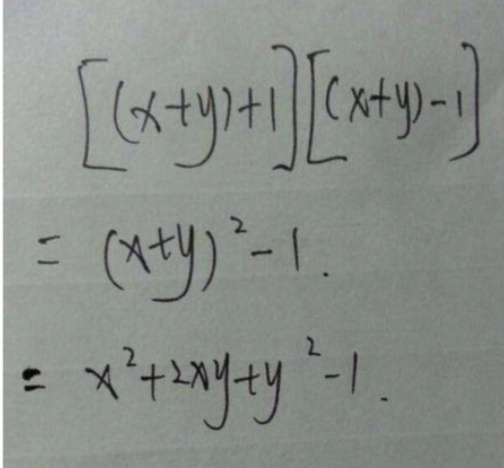 [(x+y)+1][(x+y)-1]
= (x+y)²-1.
= x²+2xy+y²-1.